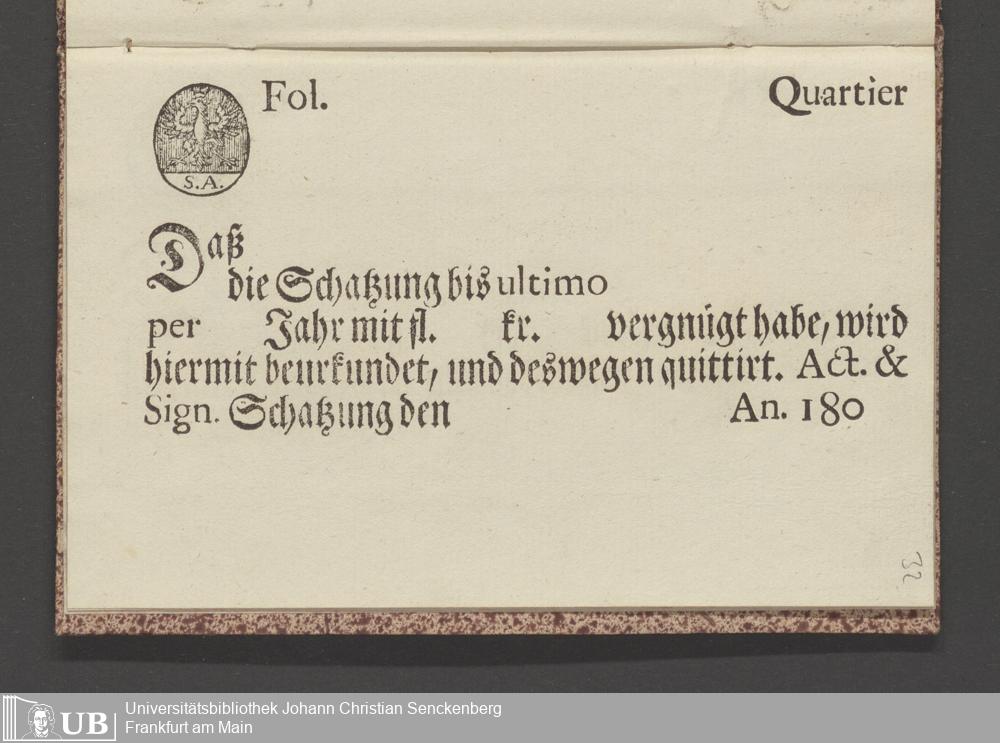 Fol. Quartier
S.A.
Daß
die Schatzung bis ultimo
per Jahr mit fl. kr. vergnügt habe, wird
hiermit beurkundet, und deswegen quittirt. Act. &
Sign. Schatzung den An. 180
32
UB Universitätsbibliothek Johann Christian Senckenberg
Frankfurt am Main